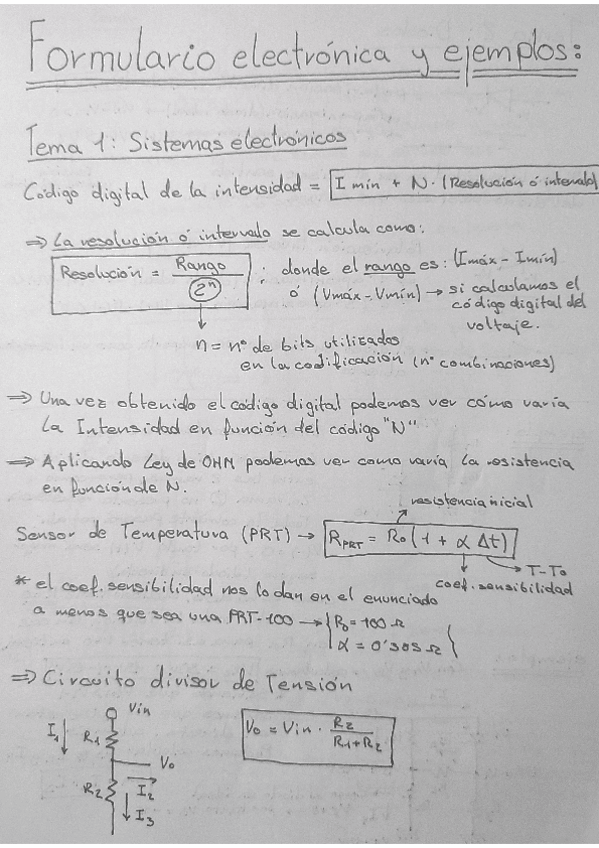 Formulario electrónica y ejemplos:
Tema 1: Sistemas electrónicos
Código digital de la intensidad = I mín + N · (Resolución ó intervalo)
⇒ La resolución ó intervalo se calcula como:
Resolución = Rango / 2ⁿ ; donde el rango es: (Imáx - Imín)
ó (Vmáx - Vmín) → si calculamos el
código digital del
voltaje.
n = nº de bits utilizados
en la codificación (nº combinaciones)
⇒ Una vez obtenido el código digital podemos ver cómo varía
la Intensidad en función del código "N"
⇒ Aplicando Ley de OHM podemos ver como varía la resistencia
en función de N.
resistencia inicial
Sensor de Temperatura (PRT) → R_PRT = R₀ (1 + α Δt)
T - T₀
coef. sensibilidad
* el coef. sensibilidad nos lo dan en el enunciado
a menos que sea una PRT-100 → { R₀ = 100 Ω
α = 0'305 Ω }
⇒ Circuito divisor de Tensión
Vin
I₁ R₁
V₀ = Vin · R₂ / (R₁ + R₂)
V₀
R₂ I₂
I₃